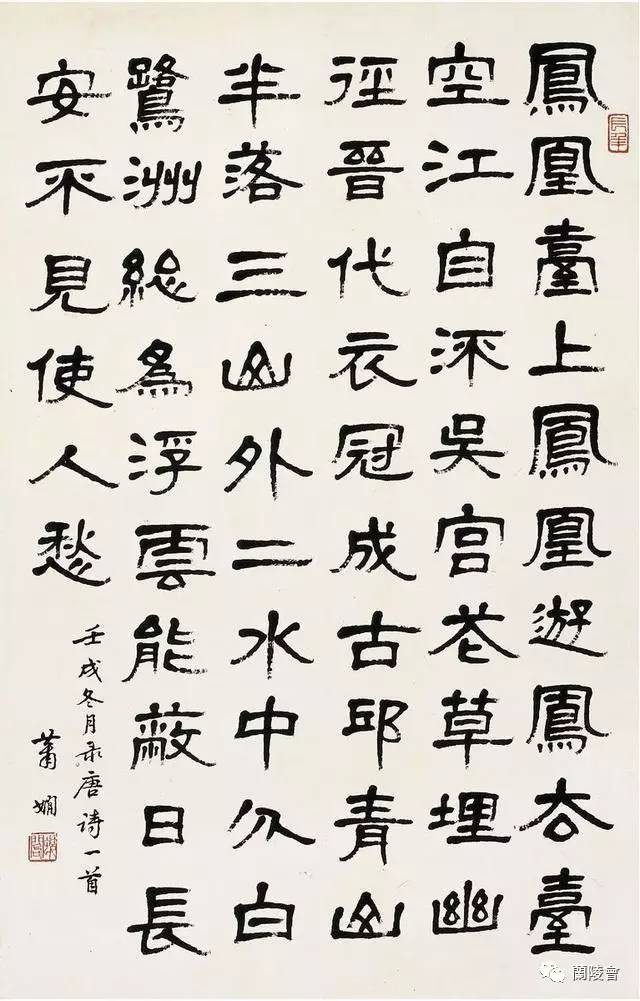 鳳凰臺上鳳凰遊鳳去臺
空江自流吳宮花草埋幽
徑晉代衣冠成古邱青山
半落三山外二水中分白
鷺洲總爲浮雲能蔽日長
安不見使人愁
壬戌冬月录唐诗一首
蕭嫻
蘭陵會